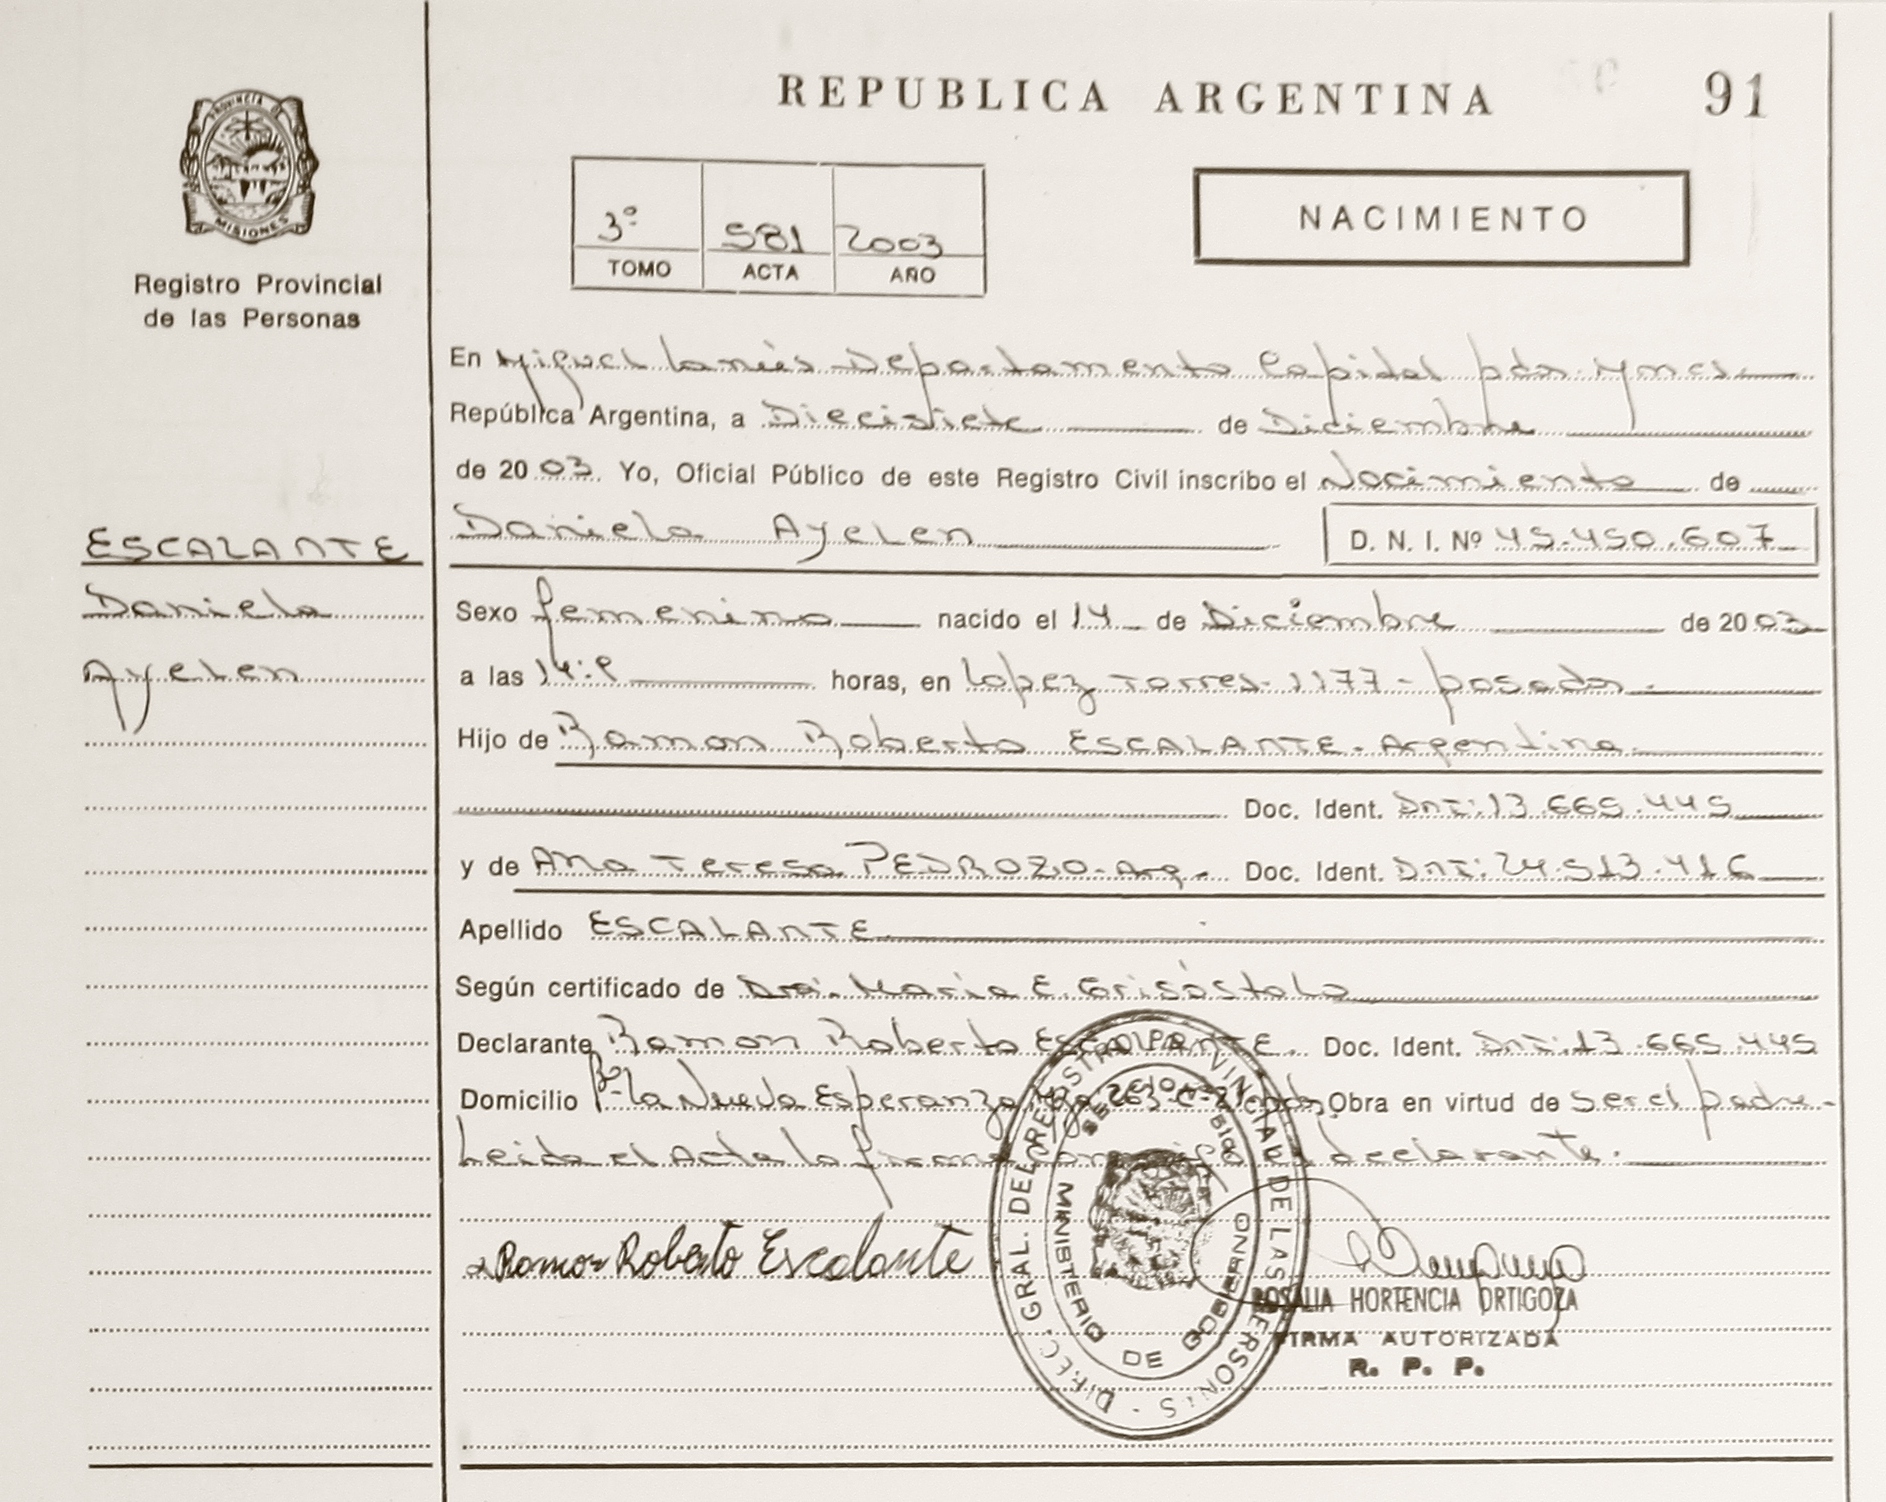 REPUBLICA ARGENTINA 91
PROVINCIA DE MISIONES
Registro Provincial
de las Personas
3º 581 2003
TOMO ACTA AÑO
NACIMIENTO
En Miguel Lanús Departamento Capital pcia. Mnes.
República Argentina, a Diecisiete de Diciembre
de 2003. Yo, Oficial Público de este Registro Civil inscribo el Nacimiento de
ESCALANTE
Daniela
Ayelen
Daniela Ayelen D. N. I. Nº 45.450.607
Sexo femenino nacido el 14 de Diciembre de 2003
a las 14: horas, en Lopez Torres 1177 - posadas.
Hijo de Ramon Roberto ESCALANTE. Argentino.
Doc. Ident. DNI: 13.665.445
y de Ana Teresa PEDROZO - Arg. Doc. Ident. DNI: 24.513.416
Apellido ESCALANTE
Según certificado de Dra. Maria E. Grisóstolo
Declarante Ramon Roberto ESCALANTE. Doc. Ident. DNI: 13.665.445
Domicilio Bº La Nueva Esperanza 263 Obra en virtud de ser el padre-
Leida el Acta la firma conmigo el declarante.
Ramon Roberto Escalante
DIREC. GRAL. DEL REGISTRO PROVINCIAL DE LAS PERSONAS
MINISTERIO DE GOBIERNO
ROSALIA HORTENCIA ORTIGOZA
FIRMA AUTORIZADA
R. P. P.